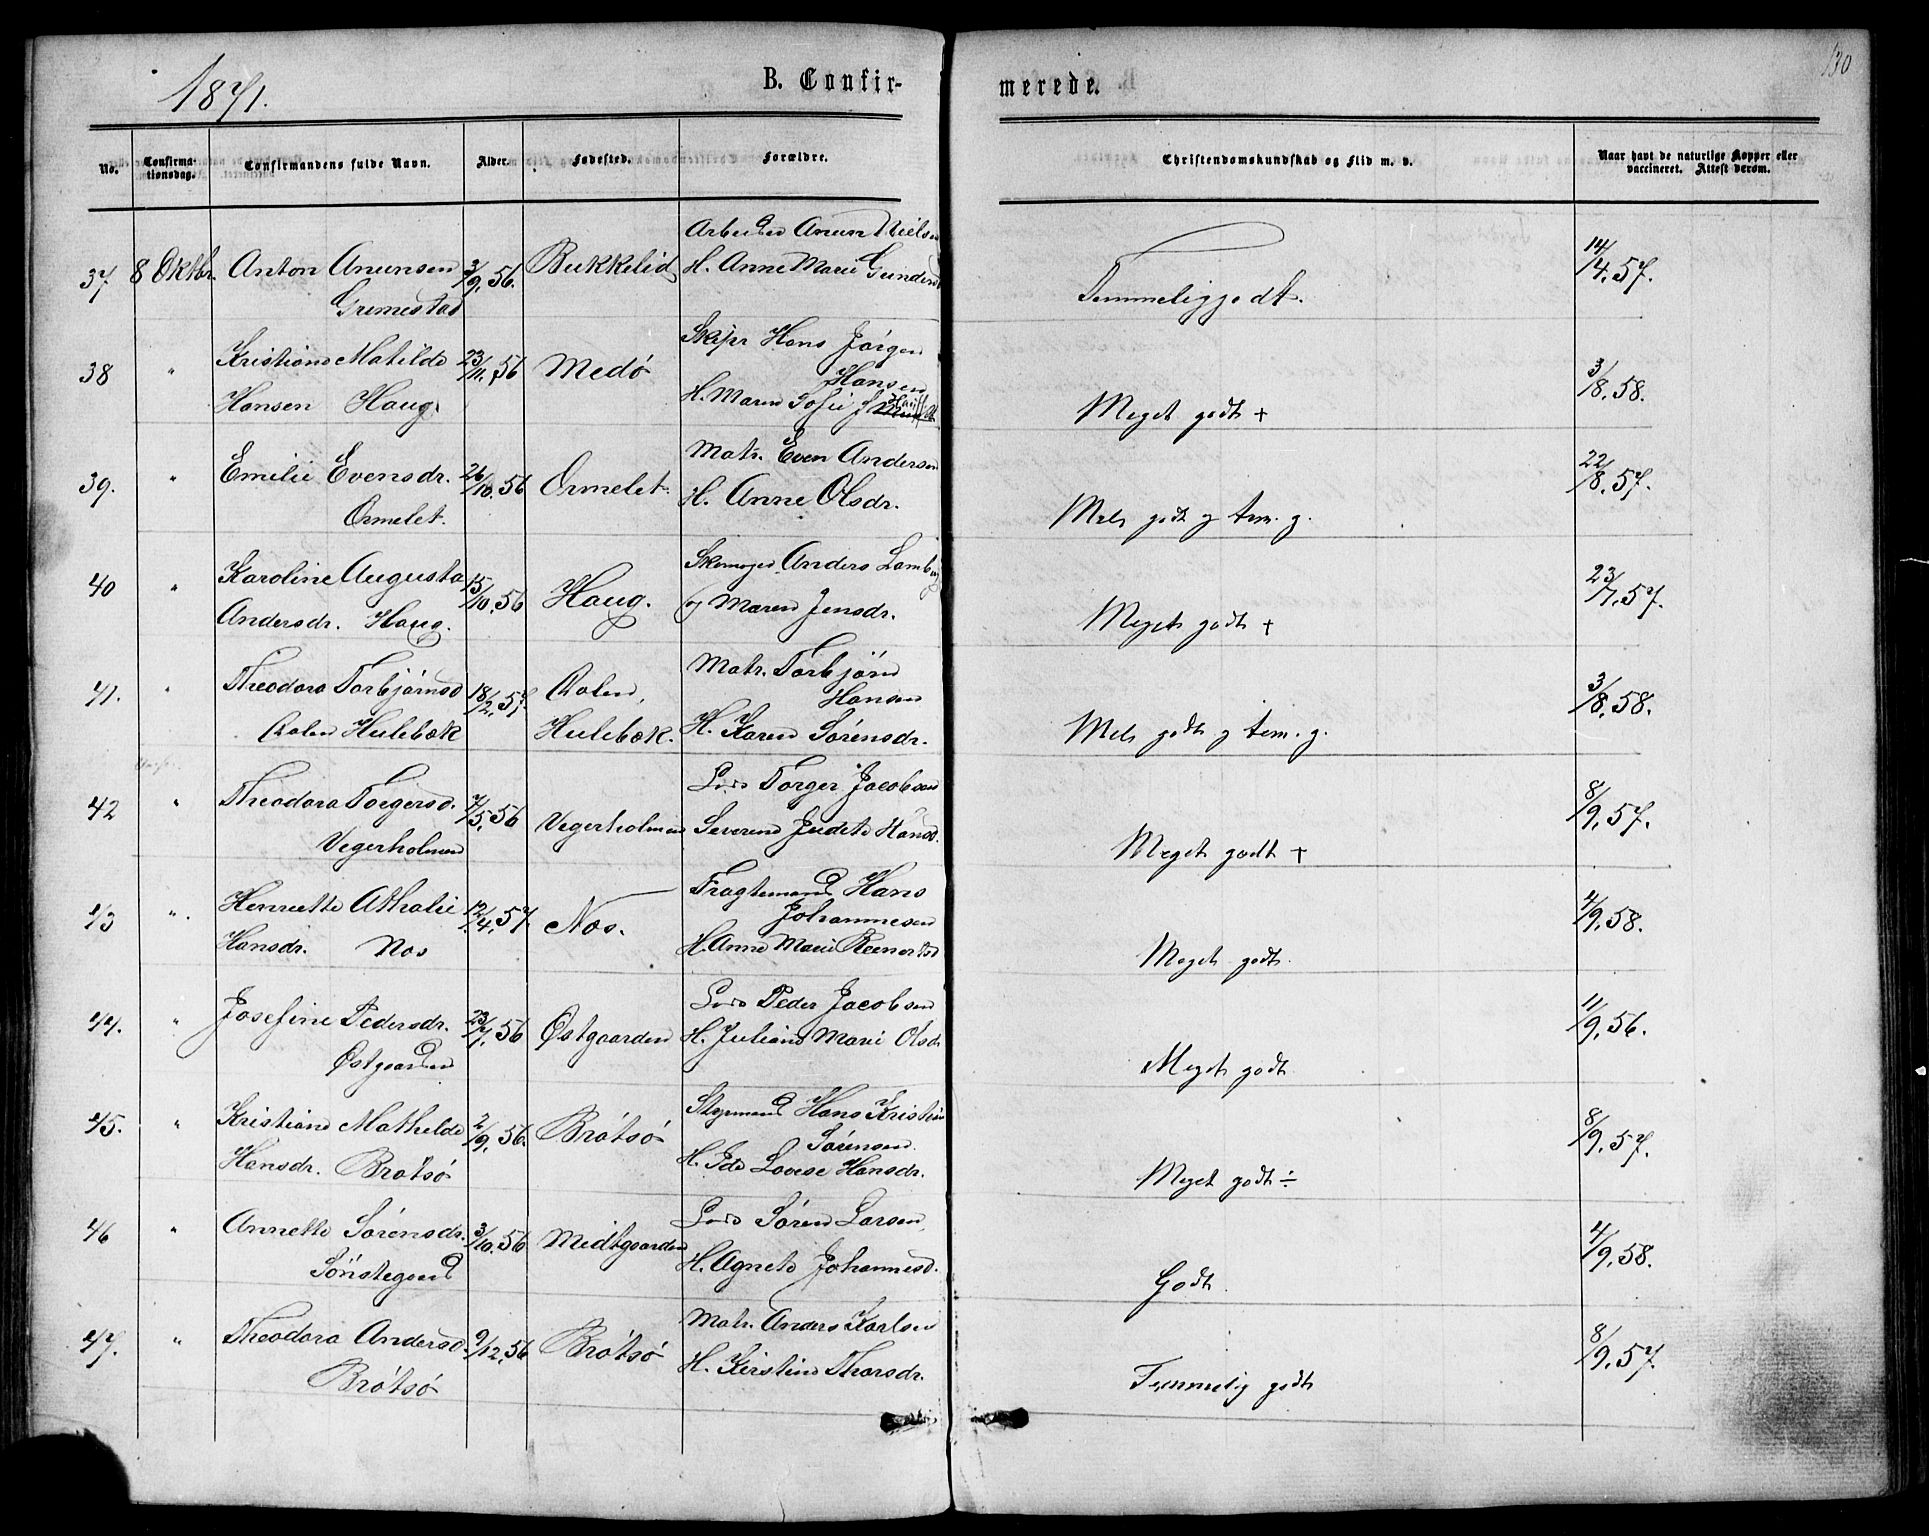 1871.
B. Confir-
merede.
130
No.
Confirma-
tionsdag.
Confirmandens fulde Navn.
Alder.
Fødested.
Forældre.
Christendomskundskab og Flid m. v.
Naar havt de naturlige Kopper eller
vaccineret. Attest derom.
37 8 Oktbr. Anton Anunsen 3/9, 56. Bukkelid
Gremestad
Arbeider Anun Nielsen
H. Anne Marie Gunders
Temmelig godt. 14/4, 57.
38 " Kristiane Matilde 23/11, 56 Medö
Hansen Haug.
Skipr Hans Jörgen
Hansen
H. Maren Sofie
Meget godt + 3/8, 58.
39. " Emilie Evensdr. 26/10, 56 Ormelet.
Ormelet.
Matr. Even Andersen
H. Anne Olsdr.
Mels godt og tem. g. 22/8, 57.
40 " Karoline Augusta 15/10, 56 Haug.
Andersdr. Haug.
Anders Lamberg
og Maren Jensdr.
Meget godt + 23/7, 57.
41. " Theodora Torbjörnsd 18/2, 57.
Hulebæk Hulebæk.
Matr. Torbjörn
Hansen
H. Karen Sörensdr.
Mels godt og tem. g. 3/8, 58.
42 " Theodora Torgersd. 7/5, 56 Vegerholmen
Vegerholmen
Lods Torger Jacobsen
Severine Judete Hansd.
Meget godt + 8/9, 57.
43 " Henriette Athalie 12/4, 57. Nes.
Hansdr. Nes
Fragtemand Hans
Johannesen
H. Anne Marie Reenertsd
Meget godt. 4/9, 58.
44. " Josefine Pedersdr. 23/7, 56 Østgaarden
Østgaarden
Lods Peder Jacobsen
H. Juliane Marie Olsdr
Meget godt 11/9, 56.
45. " Kristiane Mathilde 2/9, 56. Brötsö
Hansdr. Brötsö
Styrmand Hans Kristian
Sörensen.
H. Ide Lovise Hansdr.
Meget godt ÷ 8/9, 57.
46 " Annette Sörensdr. 3/10, 56 Midtgaarden
Sönstegaard
Lods Sören Larsen,
H. Agnete Johannesd.
Godt. 4/9, 58.
47. " Theodora Andersd. 9/12, 56 Brötsö
Brötsö
Matr. Anders Karlsen
H. Kirstine Thorsdr.
Temmelig godt 8/9, 57.